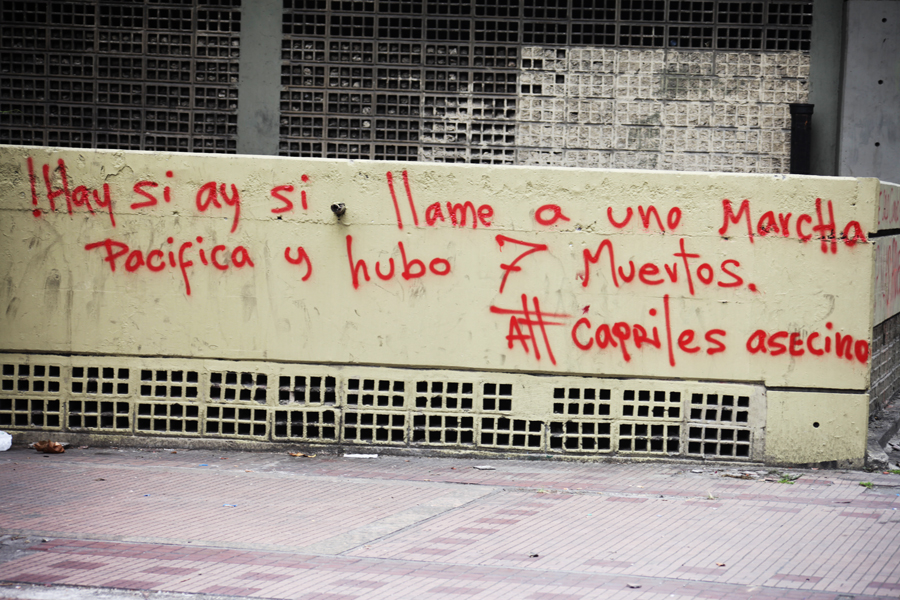 !Hay si ay si llame a uno Marcha
Pacifica y hubo 7 Muertos.
Att Capriles asecino